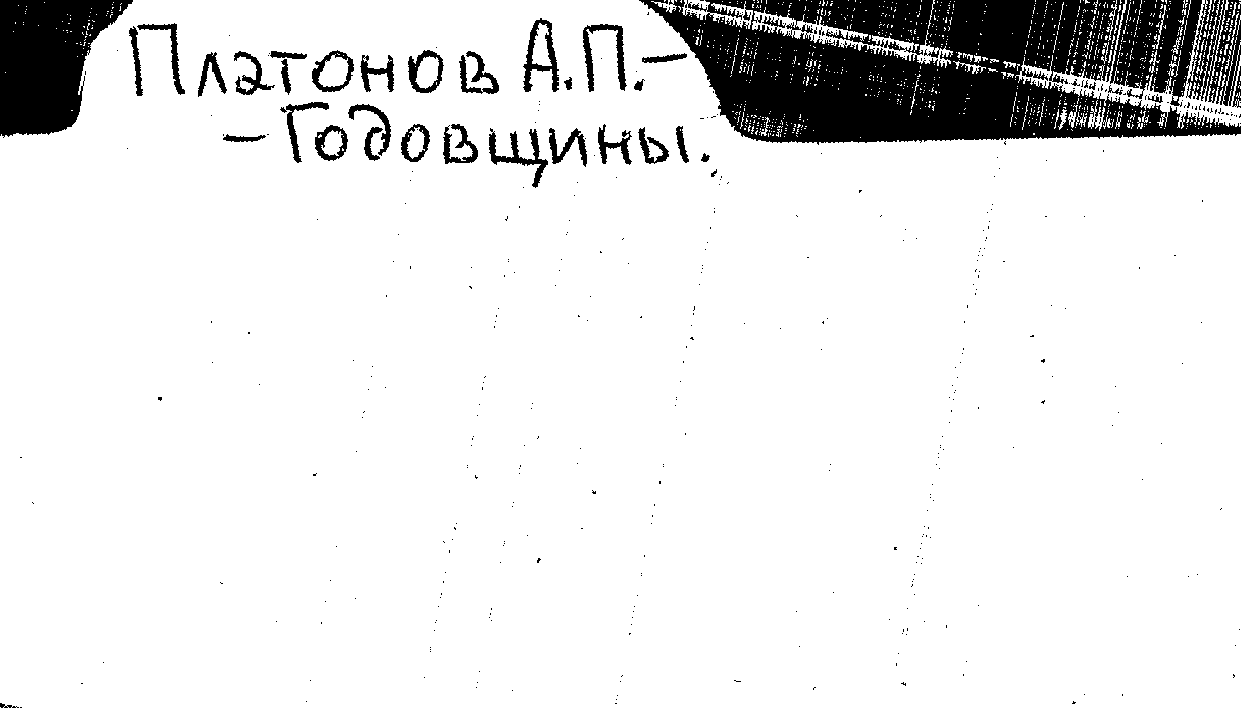 Платонов А.П. –
– Годовщины.